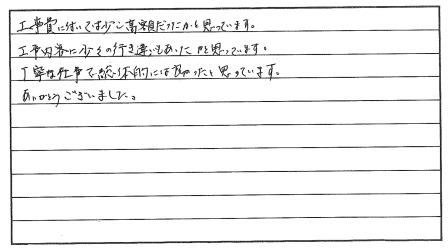 工事費に付いては少し高額だったかと思っています。
工事内容に少々の行き違いもあったかと思っています。
丁寧な仕事で総体的には良かったと思っています。
ありがとうございました。